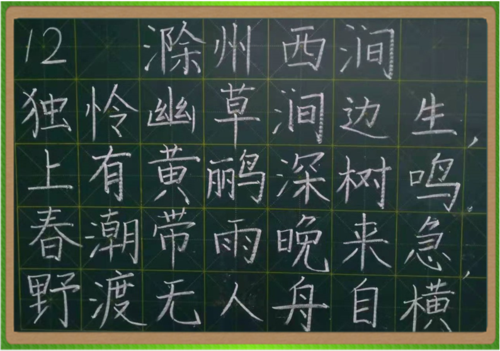 12 滁州西涧
独怜幽草涧边生，
上有黄鹂深树鸣。
春潮带雨晚来急，
野渡无人舟自横